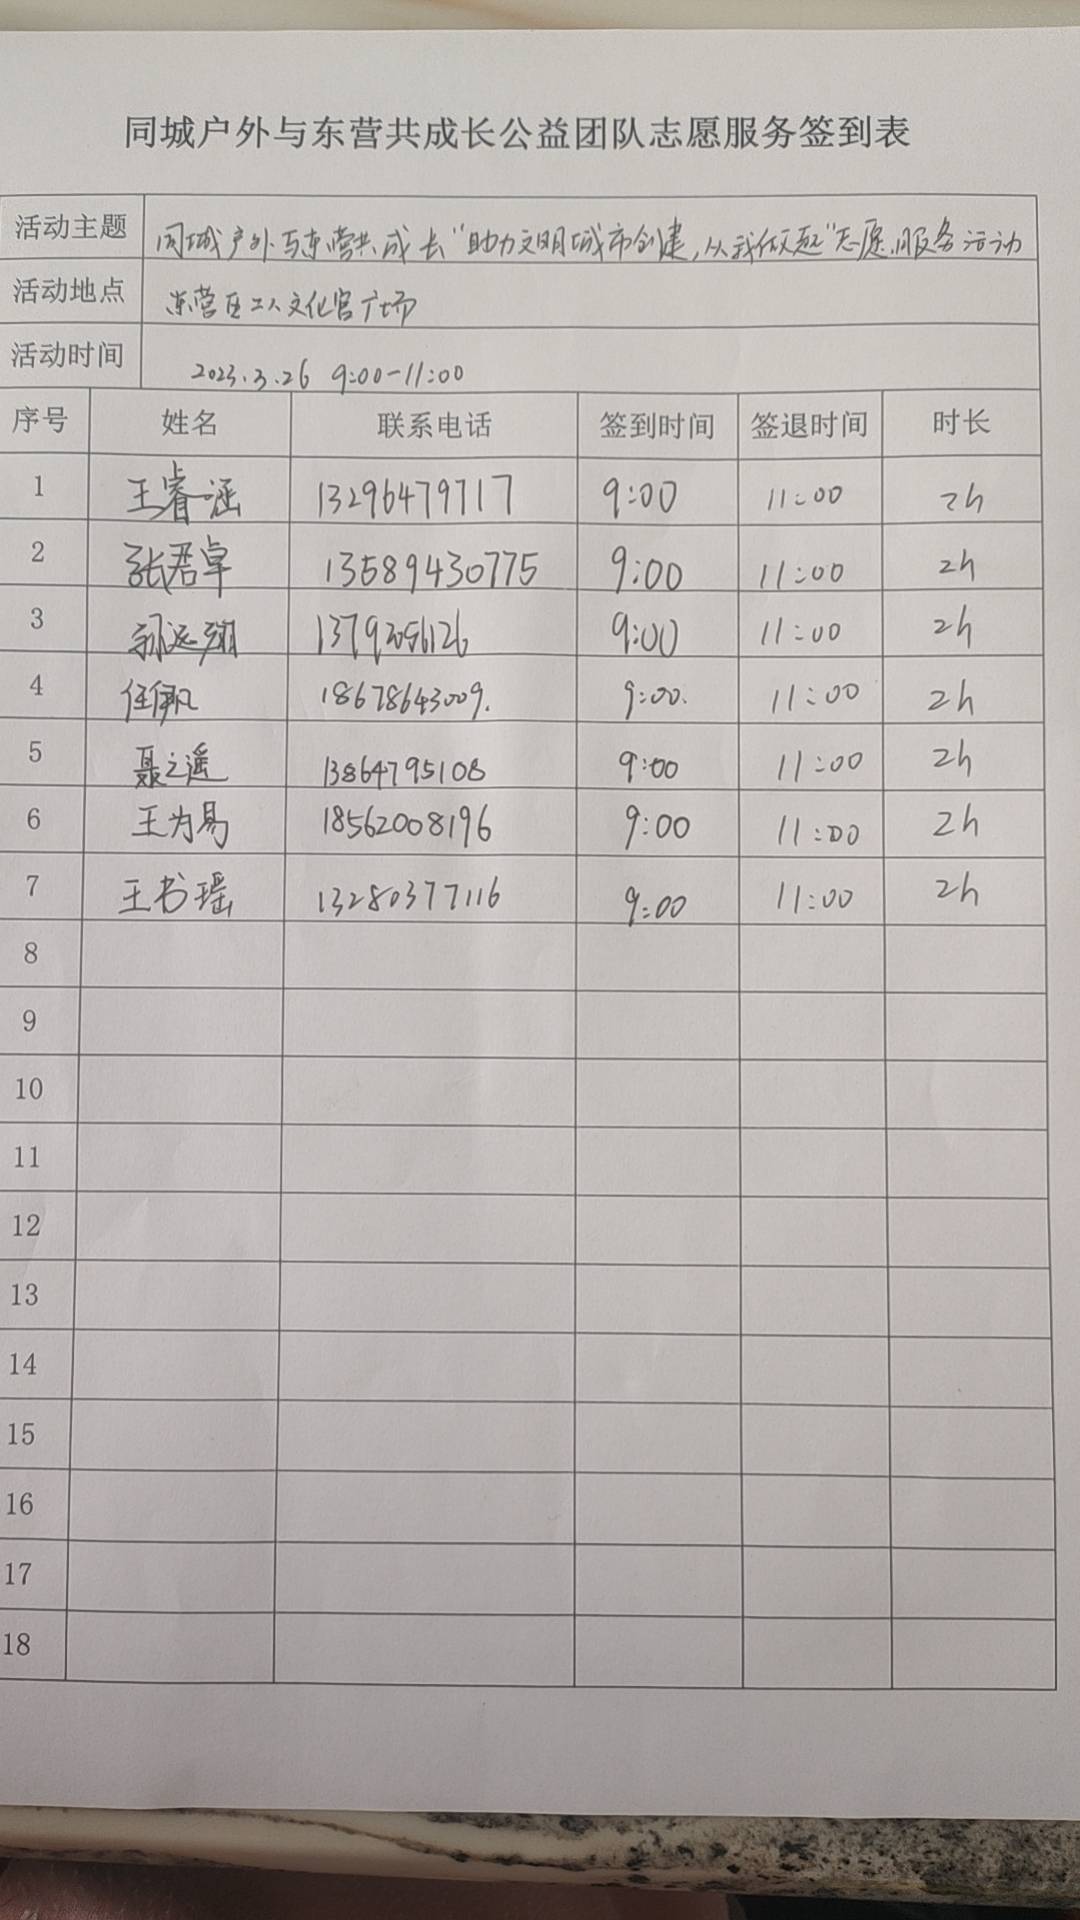 同城户外与东营共成长公益团队志愿服务签到表
活动主题 同城户外与东营共成长“助力文明城市创建,从我做起”志愿服务活动
活动地点 东营区工人文化宫广场
活动时间 2023.3.26 9:00-11:00
序号 姓名 联系电话 签到时间 签退时间 时长
1 王睿涵 13296479717 9:00 11:00 2h
2 张君卓 13589430775 9:00 11:00 2h
3 孙远翔 9:00 11:00 2h
4 18678643009. 9:00. 11:00 2h
5 聂之遥 13864795108 9:00 11:00 2h
6 王为易 18562008196 9:00 11:00 2h
7 王书瑶 13280377116 9:00 11:00 2h
8
9
10
11
12
13
14
15
16
17
18